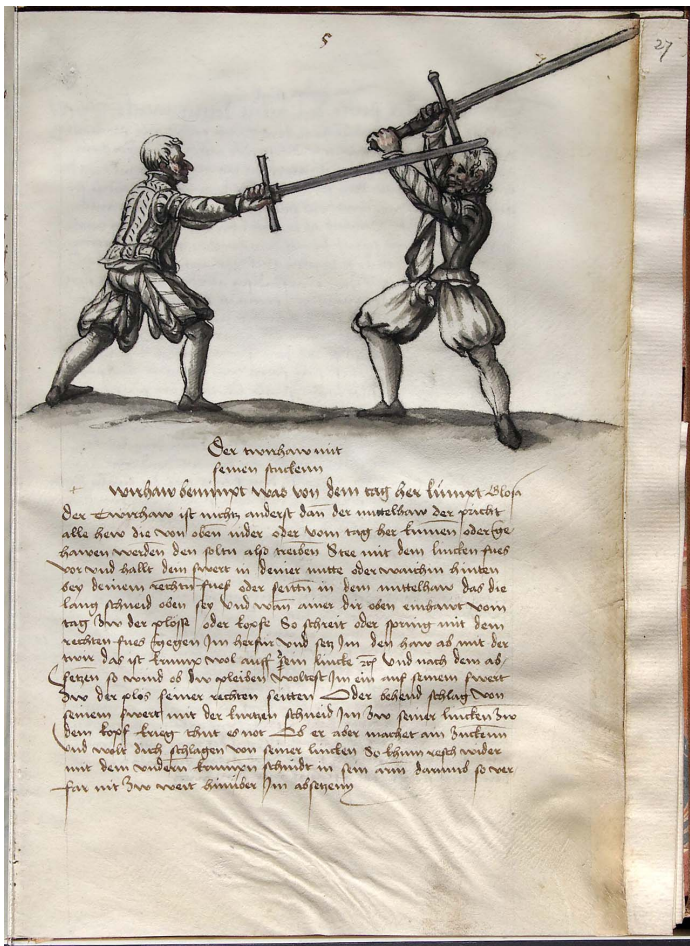 5
27
Der twirhaw mit
seinen stucken
Twirhaw benimpt was von dem tag her kumpt Glosa
der twirhaw ist nichtz anderst dan der mittelhaw der pricht
alle hew die von oben nider oder vom tag her kumen oder ge-
hawen werden den soltu also treiben Stee mit dem lincken fues
vor und halt dein swert in deiner mitte oder hinten
bey deinem rechtn fues oder seittn in dem mittelhaw das die
lang schneid oben sey Und wan ainer dir oben einhawt vom
tag zw der plösse oder kopfe So schreit oder spring mit dem
rechten fues gegen Im herfur und setz Im den haw ab mit der
twir das ist krump wol auff sein lincke Und nach dem ab-
setzen so wind ob dw pleiben woltest Im ein auf seinem swert
zw der plos seiner rechten seitten Oder behend schlag von
seinem swert mit der kurtzen schneid Im zw seiner lincken zw
dem kopf krieg thut es not Ob er aber machet ain zucken
Und wolt dich schlagen von seiner lincken So khum resch wider
mit dem undern krumpen schnidt in sein arm darumb so ver
far nit zw weit hinuber Im absetzenn